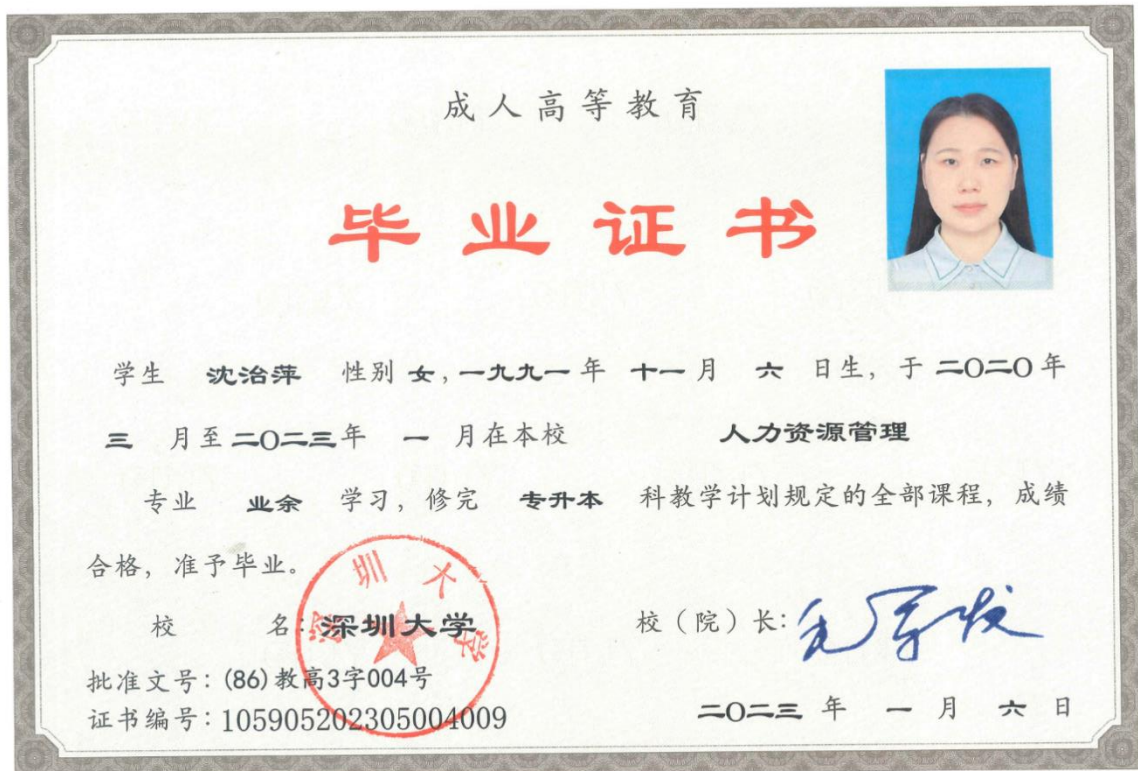 成人高等教育
毕业证书
学生 沈治萍 性别 女，一九九一年 十一月 六 日生，于二〇二〇年
三 月至二〇二三年 一 月在本校 人力资源管理
专业 业余 学习，修完 专升本 科教学计划规定的全部课程，成绩
合格，准予毕业。
校 名：深圳大学
深圳大学
校（院）长：毛军发
批准文号：(86)教高3字004号
证书编号：105905202305004009
二〇二三 年 一 月 六 日